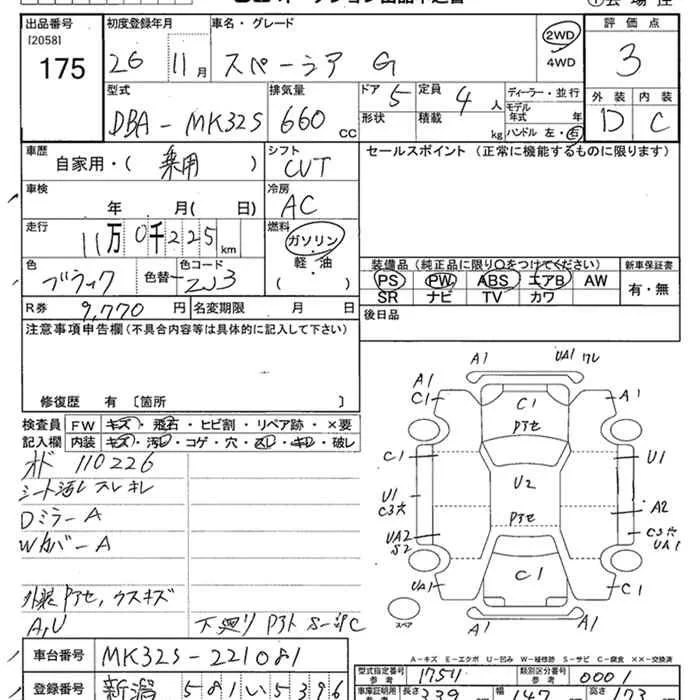 出品番号 初度登録年月 車名・グレード 評価点
[2058]
175 26 11月 スペーシア G 2WD 3
4WD
型式 排気量 ドア 5 定員 4人 ディーラー・並行 外装 内装
DBA-MK32S 660 CC 形状 積載 kg モデル年式 年 D C
ハンドル 左・右
車歴 自家用・(乗用) シフト CVT セールスポイント(正常に機能するものに限ります)
車検 年 月(日) 冷房 AC
走行 11万0千225km 燃料 ガソリン
軽・油
( )
色 ブラック 色替 色コード ZJ3
装備品(純正品に限り○をつけてください) 新車保証書
PS PW ABS エアB AW 有・無
SR ナビ TV カワ
R券 9,770円 名変期限 月 日 後日品
注意事項申告欄(不具合内容等は具体的に記入して下さい)
修復歴 有 [箇所 ]
検査員 FW キズ・飛石・ヒビ割・リペア跡・×要
記入欄 内装 キズ・汚レ・コゲ・穴・スレ・キレ・破レ
オド 110226
シート汚レ スレ キレ
Dミラー A
Wカバー A
外装 Pアセ, ウスキズ
A,U 下廻り
A1 UA1 ワレ
A1 A1
C1 C1
Pアセ
C1 U1
U2
U1 A2
C3穴 Pアセ
UA2 C3穴
S2 UA1
UA1 C1 C1
スペア A1 A1
A-キズ E-エクボ U-凹み W-補修跡 S-サビ C-腐食 ××-交換済
車台番号 MK32S-221081 型式指定番号 参考 17511 類別区分番号 参考 0001
登録番号 新潟 581 い 5396 車庫証明用 参考 長さ 339 幅 147 高さ 173